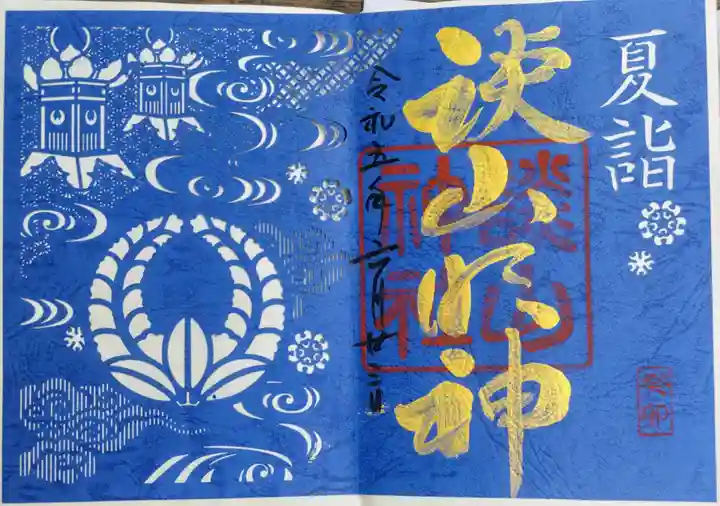 夏詣
談山明神
談山神社
令和五年六月廿三日
癸卯